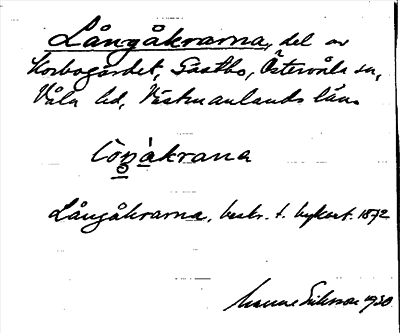 Långåkrarna, del av
Korbogärdet, Sästbo, Östervåla sn,
Våla hd, Västmanlands län.
Lòŋàkrana
Långåkrarna, beskr. t. lyckert. 1872
Manne Eriksson 1930